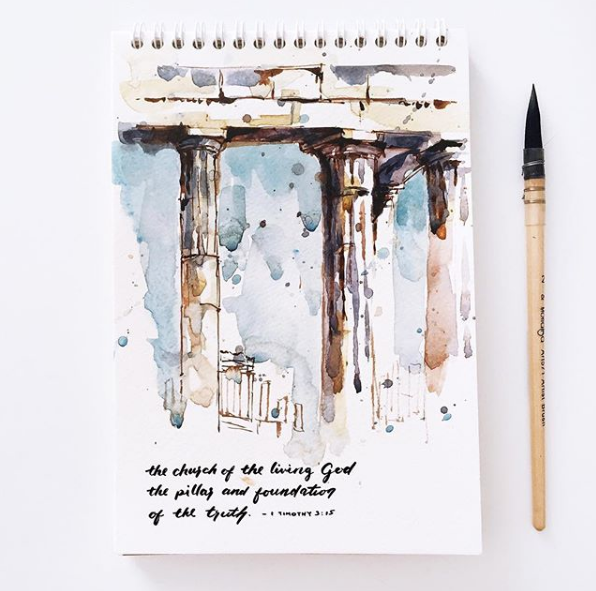 the church of the living God
the pillar and foundation
of the truth. - 1 TIMOTHY 3:15